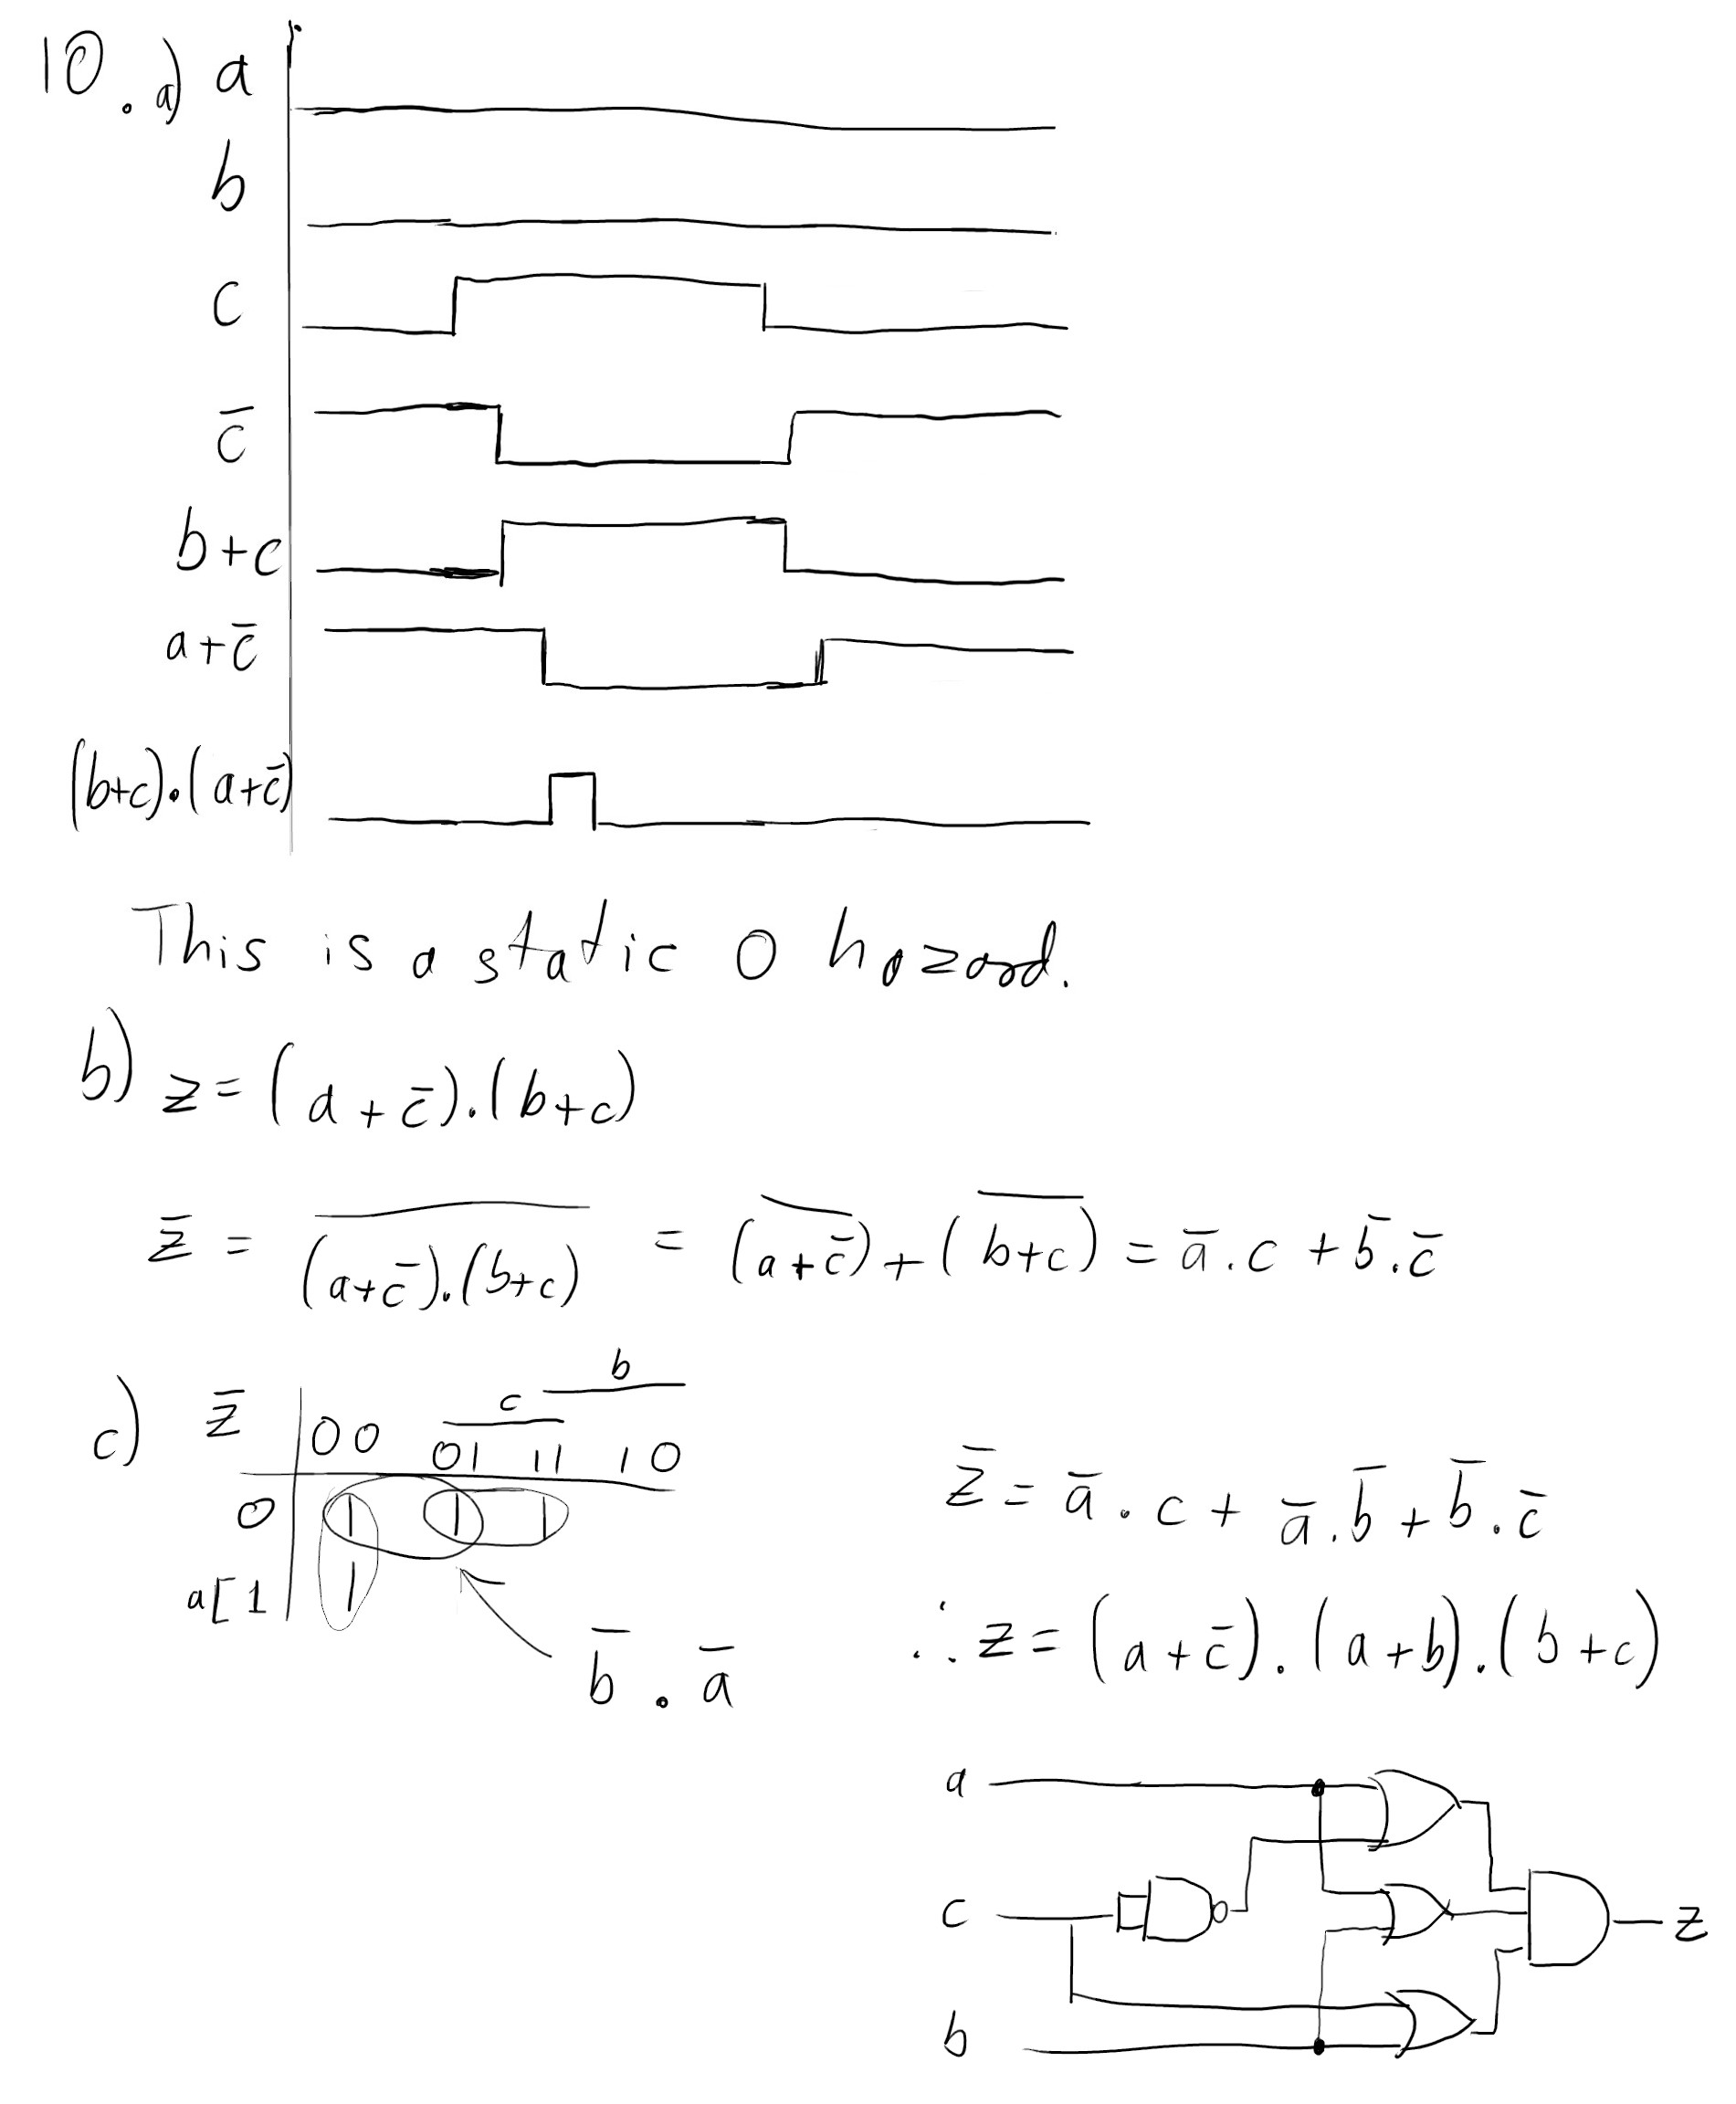 10. a) a
b
c
c̅
b+c
a+c̅
(b+c).(a+c̅)
This is a static 0 hazard.
b) z = (a+c̅).(b+c)
z̅ = \overline{(a+c̅).(b+c)} = \overline{(a+c̅)} + \overline{(b+c)} = a̅.c + b̅.c̅
b
c) z̅ c
00 01 11 10
0 1 1 1
a[1 1
b̅.a̅
z̅ = a̅.c + a̅.b̅ + b̅.c̅
∴ z = (a+c̅).(a+b).(b+c)
a
c z
b